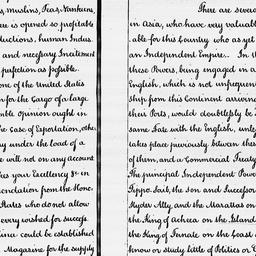 s, Muslins, Teas, Nankeens,
re is opened so profitable
ductions, human Indus
and necessary Incitement
perfection as possible.
one of the United States
n for the Cargo of a large
able Opinion ought in
he Case of Exportation, othe
y under the load of a
e will not on any account
kes your Excellency &c in
mendation from the Hono:
States who do not allow
every wished for success
lince could be established
Magazine for the supply
There are severa
in Asia, who have very valuabl
able for this Country who as yet
an Independent Empire. In th
these Powers, being engaged in a
English, which is not unfrequen
ship from this Continent arrivin
their Ports, would doubtless be
same Fate with the English, unle
takes place previously between thes
of them, and a Commercial Treaty
The principal Independent Power
Tippo Saib, the Son and Successor
Hyder Ally, and the Marattas on
the King of Acheen on the Island
the King of Ternate on the Coast
know or study little of Politics or C